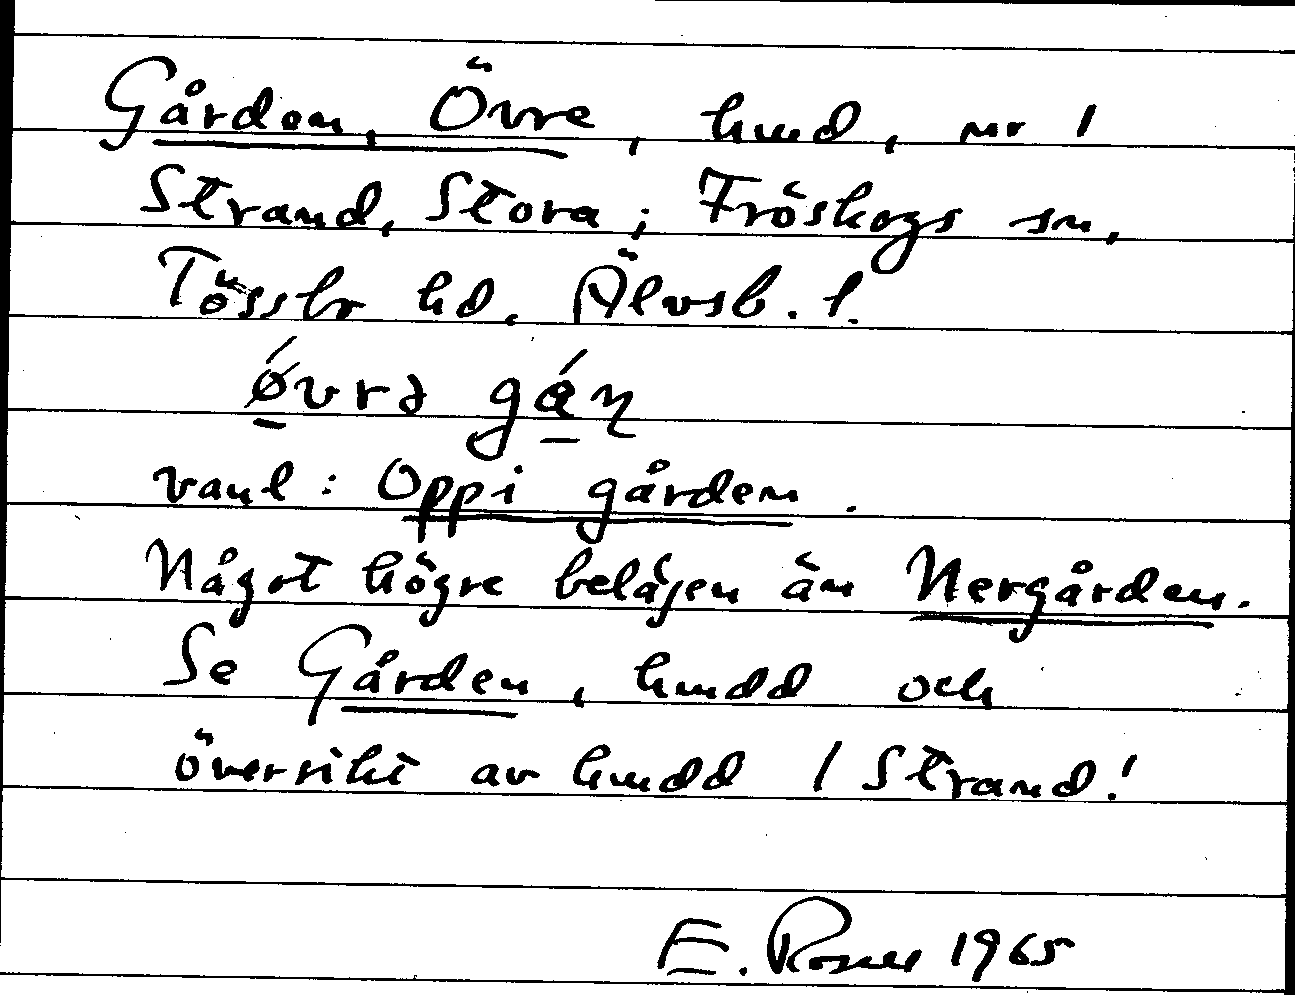 Gården, Övre, hmd, nr 1
Strand, Stora; Fröskogs sn,
Tössbo hd. Älvsb. l.
ǿvrə gáɳ
vanl: Oppi gården.
Något högre belägen än Nergården.
Se Gården, hmdd och
översikt av hmdd 1 Strand!
E. 1965